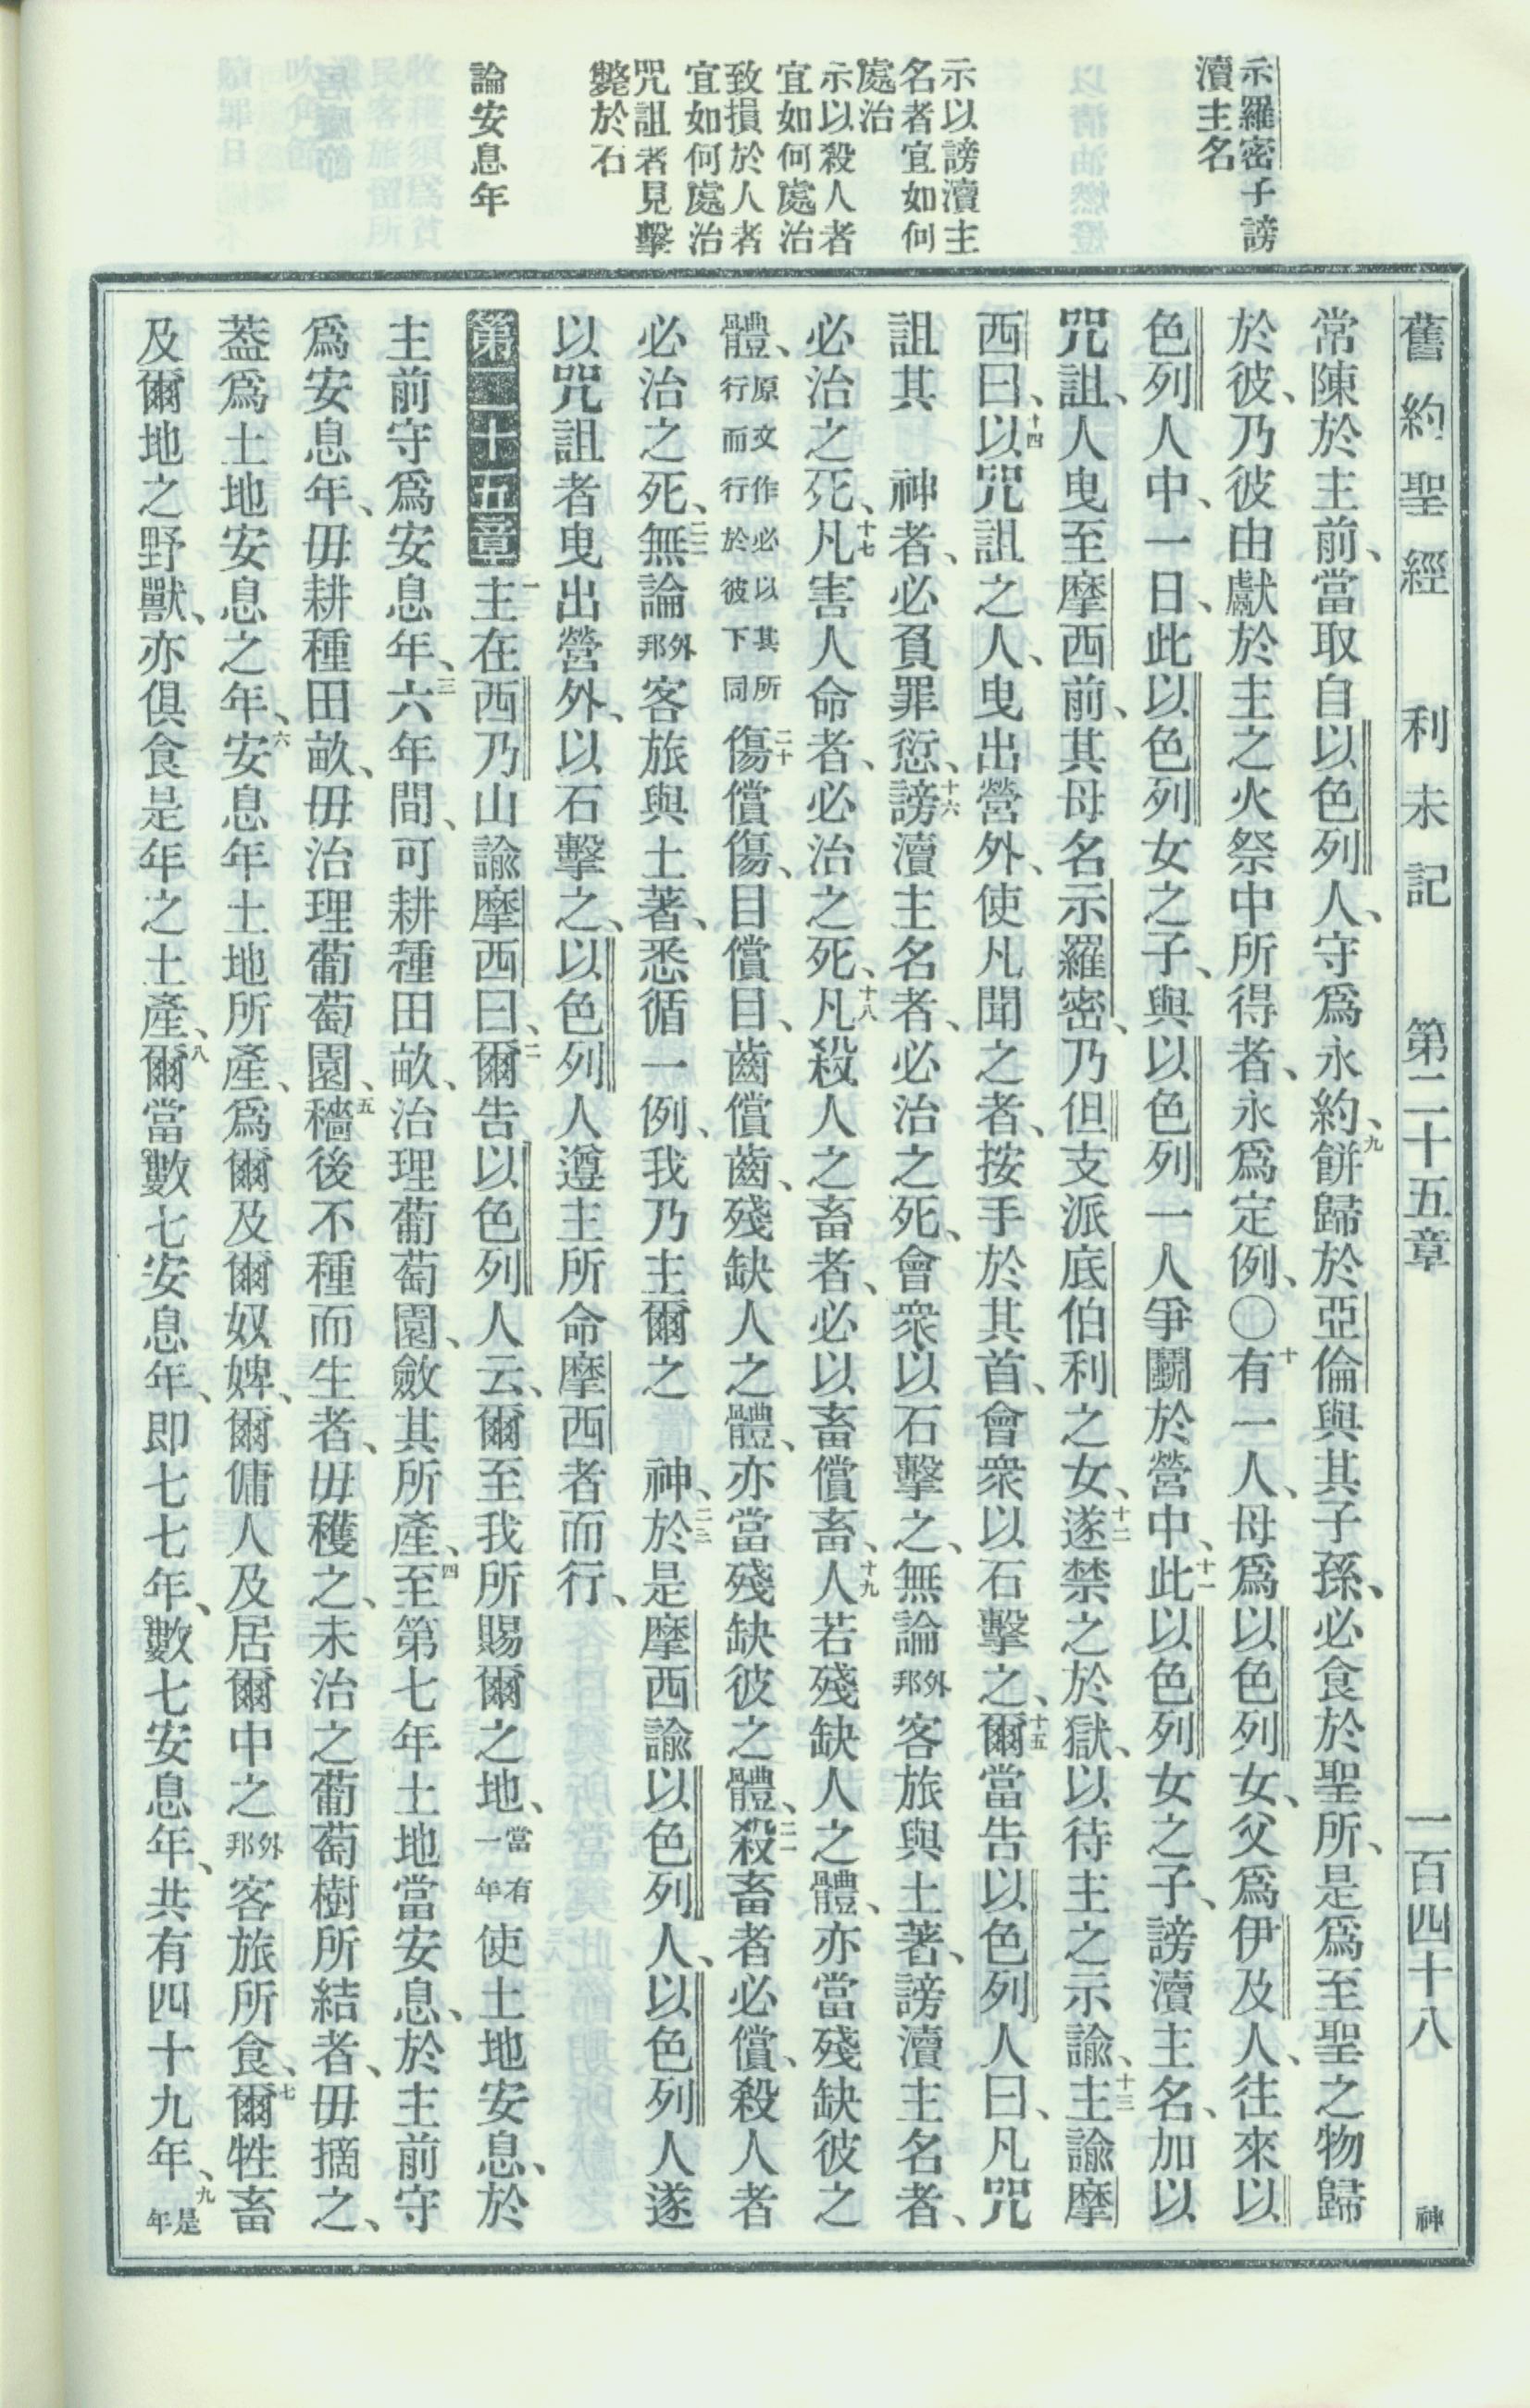 示羅密子謗
瀆主名
示以謗瀆主
名者宜如何
處治
示以殺人者
宜如何處治
致損於人者
宜如何處治
咒詛者見擊
斃於石
論安息年
舊約聖經　利未記　第二十五章　一百四十八　神
常陳於主前、當取自以色列人、守爲永約、九餅歸於亞倫與其子孫、必食於聖所、是爲至聖之物歸
於彼、乃彼由獻於主之火祭中所得者、永爲定例、〇十有一人、母爲以色列女、父爲伊及人、往來以
色列人中、一日、此以色列女之子、與以色列一人爭鬭於營中、十一此以色列女之子、謗瀆主名、加以
咒詛、人曳至摩西前、其母名示羅密、乃但支派底伯利之女、十二遂禁之於獄、以待主之示諭、十三主諭摩
西曰、十四以咒詛之人、曳出營外、使凡聞之者、按手於其首、會衆以石擊之、十五爾當告以色列人曰、凡咒
詛其　神者、必負罪愆、十六謗瀆主名者、必治之死、會衆以石擊之、無論外邦客旅與土著、謗瀆主名者、
必治之死、十七凡害人命者、必治之死、十八凡殺人之畜者、必以畜償畜、十九人若殘缺人之體、亦當殘缺彼之
體、原文作必以其所行而行於彼下同二十傷償傷、目償目、齒償齒、殘缺人之體、亦當殘缺彼之體、二一殺畜者必償、殺人者
必治之死、二二無論外邦客旅與土著、悉循一例、我乃主爾之　神、二三於是摩西諭以色列人、以色列人遂
以咒詛者曳出營外、以石擊之、以色列人遵主所命摩西者而行、
第二十五章一主在西乃山諭摩西曰、二爾告以色列人云、爾至我所賜爾之地、當有一年使土地安息、於
主前守爲安息年、三六年間、可耕種田畝、治理葡萄園、斂其所產、四至第七年土地當安息、於主前守
爲安息年、毋耕種田畝、毋治理葡萄園、五穡後不種而生者、毋穫之、未治之葡萄樹所結者、毋摘之、
葢爲土地安息之年、六安息年土地所產、爲爾及爾奴婢、爾傭人及居爾中之外邦客旅所食、七爾牲畜
及爾地之野獸、亦俱食是年之土產、八爾當數七安息年、即七七年、數七安息年、共有四十九年、九是年